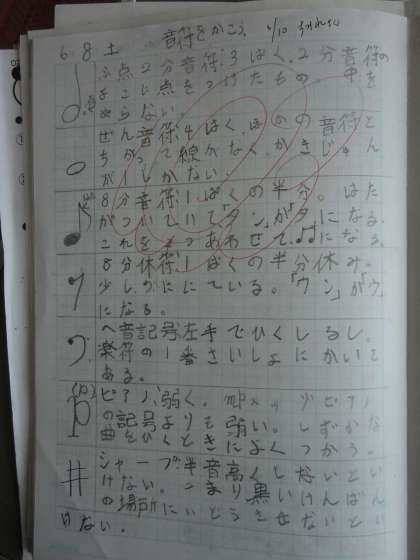 6.8 土 音符をかこう。
ふ点2分音符:3はく。2分音符の
よこに点をつけたもの。中を
ぬらない。
ぜん音符:4はく。ほかの音符と
ちがって線がなく、かきじゅん
が1しかない。
8分音符:1ぱくの半分。はた
がついていて「タン」が「タ」になる。
これを2つあわせて、♫になる。
8分休符:1ぱくの半分休み。
少しのににている。「ウン」が「ウ」
になる。
ヘ音記号:左手でひくしるし。
楽符の1番さいしょにかいて
ある。
(p)ピアノ:弱く。mp
の記号よりも弱い。しずかな
曲をひくときによくつかう。
シャープ:半音高くしないとい
けない。つまり黒いけんばん
の場所にいどうさせないとい
けない。